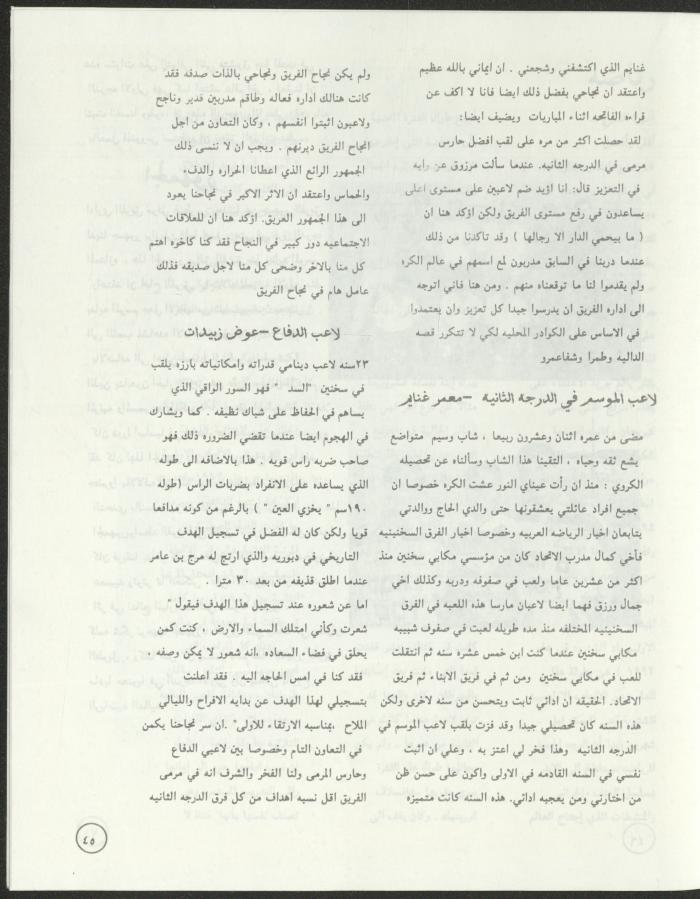 غنايم الذي اكتشفني وشجعني . ان ايماني بالله عظيم
واعتقد ان نجاحي بفضل ذلك ايضا فانا لا اكف عن
قراءه الفاتحه اثناء المباريات ويضيف ايضا:
لقد حصلت اكثر من مره على لقب افضل حارس
مرمى في الدرجه الثانيه. عندما سألت مرزوق عن رايه
في التعزيز قال: انا اؤيد ضم لاعبين على مستوى اعلى
يساعدون في رفع مستوى الفريق ولكن اؤكد هنا ان
( ما بيحمي الدار الا رجالها ) وقد تاكدنا من ذلك
عندما دربنا في السابق مدربون لمع اسمهم في عالم الكره
ولم يقدموا لنا ما توقعناه منهم . ومن هنا فاني اتوجه
الى اداره الفريق ان يدرسوا جيدا كل تعزيز وان يعتمدوا
في الاساس على الكوادر المحليه لكي لا تتكرر قصه
الداليه وطمرا وشفاعمرو
لاعب الموسم في الدرجه الثانيه -معمر غنايم
مضى من عمره اثنان وعشرون ربيعا ، شاب وسيم متواضع
يشع ثقه وحياه ، التقينا هذا الشاب وسألناه عن تحصيله
الكروي : منذ ان رأت عيناي النور عشت الكره خصوصا ان
جميع افراد عائلتي يعشقونها حتى والدي الحاج ووالدتي
يتابعان اخبار الرياضه العربيه وخصوصا اخبار الفرق السخنينيه
فأخي كمال مدرب الاتحاد كان من مؤسسي مكابي سخنين منذ
اكثر من عشرين عاما ولعب في صفوفه ودربه وكذلك اخي
جمال ورزق فهما ايضا لاعبان مارسا هذه اللعبه في الفرق
السخنينيه المختلفه منذ مده طويله لعبت في صفوف شبيبه
مكابي سخنين عندما كنت ابن خمس عشره سنه ثم انتقلت
للعب في مكابي سخنين ومن ثم في فريق الابناء ثم فريق
الاتحاد. الحقيقه ان ادائي ثابت ويتحسن من سنه لاخرى ولكن
هذه السنه كان تحصيلي جيدا وقد فزت بلقب لاعب الموسم في
الدرجه الثانيه وهذا فخر لي اعتز به ، وعلي ان اثبت
نفسي في السنه القادمه في الاولى واكون على حسن ظن
من اختارني ومن يعجبه ادائي. هذه السنه كانت متميزه
ولم يكن نجاح الفريق ونجاحي بالذات صدفه فقد
كانت هنالك اداره فعاله وطاقم مدربين قدير وناجح
ولاعبون اثبتوا انفسهم ، وكان التعاون من اجل
انجاح الفريق ديرنهم . ويجب ان لا ننسى ذلك
الجمهور الرائع الذي اعطانا الحراره والدفء
والحماس واعتقد ان الاثر الاكبر في نجاحنا يعود
الى هذا الجمهور العريق. اؤكد هنا ان للعلاقات
الاجتماعيه دور كبير في النجاح فقد كنا كاخوه اهتم
كل منا بالاخر وضحى كل منا لاجل صديقه فذلك
عامل هام في نجاح الفريق
لاعب الدفاع -عوض زبيدات
٢٣سنه لاعب دينامي قدراته وامكانياته بارزه يلقب
في سخنين "السد " فهو السور الواقي الذي
يساهم في الحفاظ على شباك نظيفه . كما ويشارك
في الهجوم ايضا عندما تقضي الضروره ذلك فهو
صاحب ضربه راس قويه . هذا بالاضافه الى طوله
الذي يساعده على الانفراد بضربات الراس (طوله
١٩٠سم " يخزي العين " ) بالرغم من كونه مدافعا
قويا ولكن كان له الفضل في تسجيل الهدف
التاريخي في دبوريه والذي ارتج له مرج بن عامر
عندما اطلق قذيفه من بعد ٣٠ مترا .
اما عن شعوره عند تسجيل هذا الهدف فيقول "
شعرت وكأني امتلك السماء والارض ، كنت كمن
يحلق في فضاء السعاده ،انه شعور لا يمكن وصفه .
فقد كنا في امس الحاجه اليه . فقد اعلنت
بتسجيلي لهذا الهدف عن بدايه الافراح والليالي
الملاح ،بمناسبه الارتقاء للاولى" .ان سر نجاحنا يكمن
في التعاون التام وخصوصا بين لاعبي الدفاع
وحارس المرمى ولنا الفخر والشرف انه في مرمى
الفريق اقل نسبه اهداف من كل فرق الدرجه الثانيه
٤٥